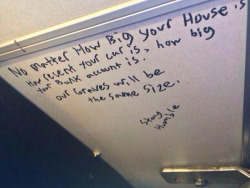 No matter How Big your House is
How recent your car is, how big
your Bank account is.
our Graves will be
the same size.
Stay
Humble